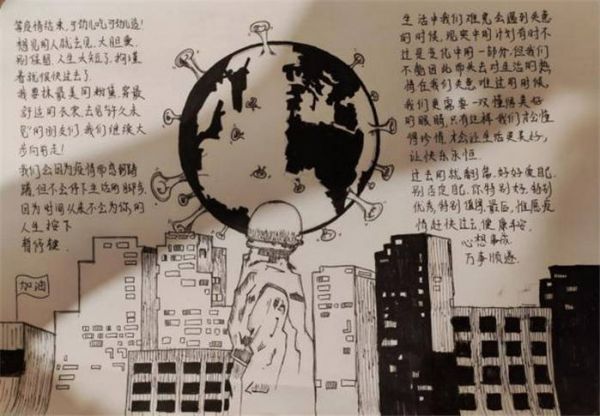 等疫情结束，可劲儿吃可劲儿造！
想见的人就去见，大胆爱，
别保留，人生太短了，拘谨
着就很快过去了。
我要抹最美的粉黛，穿最
舒适的衣裳，去见"许久未
见"的朋友们，我们继续大
步向前走！
我们会因为疫情而感到踌
躇，但不会停下生活的脚步，
因为时间从来不会为你的
人生 按下
暂停键
加油
生活中我们难免会遇到失意
的时候，现实中的计划有时不
过是变化中的一部分，但我们
不能因此而失去对生活的热
情，在我们失意难过的时候，
我们更需要一双懂得美好
的眼睛，只有这样我们才会懂
得珍惜，才会让生活更美好，
让快乐永恒。
过去的就翻篇，好好爱自己，
别否定自己，你特别好，特别
优秀，特别值得，最后，惟愿疫
情赶快过去，健康平安，
心想事成
万事顺遂